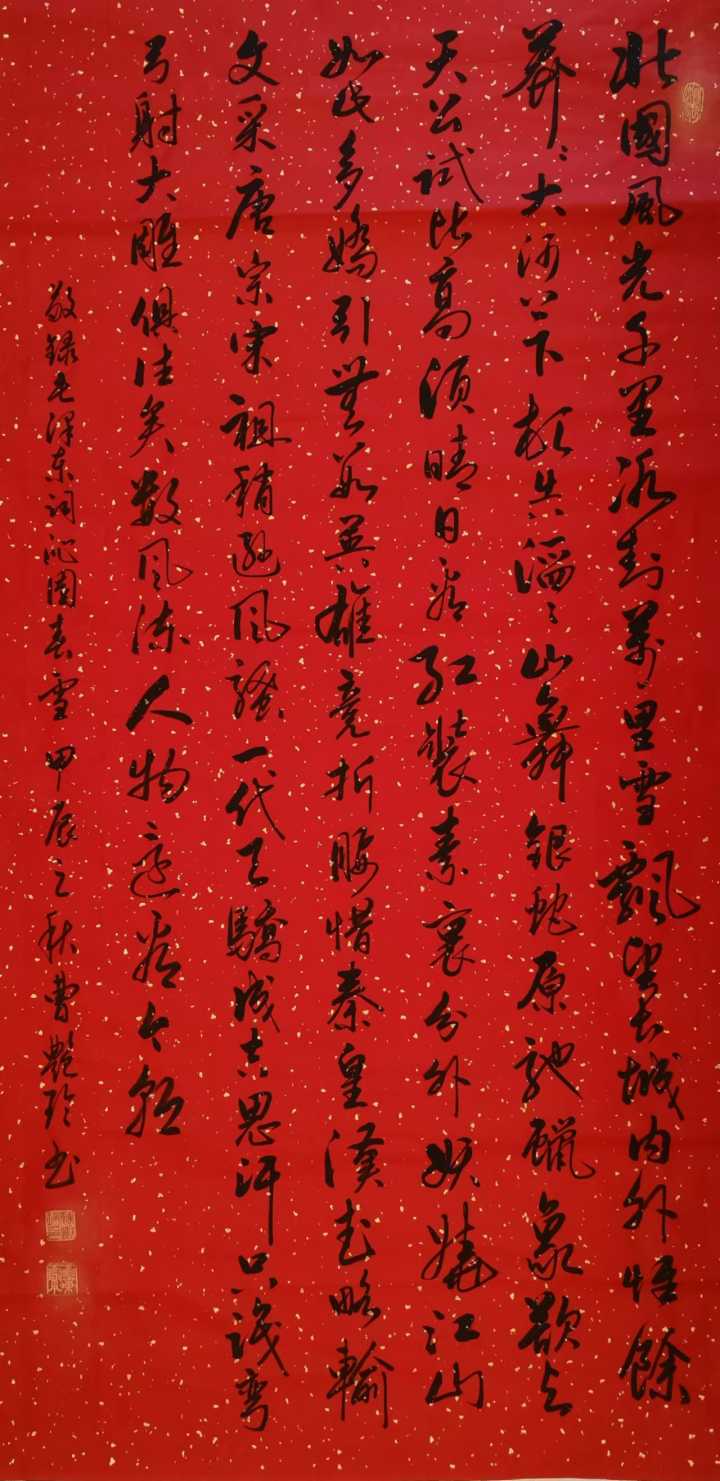 北國風光千里冰封萬里雪飄望長城内外惟餘
莽〻大河上下頓失滔〻山舞銀蛇原馳蠟象欲与
天公試比高須晴日看紅裝素裹分外妖嬈江山
如此多嬌引無數英雄竞折腰惜秦皇漢武略輸
文采唐宗宋祖稍遜风騷一代天驕成吉思汗只識彎
弓射大雕俱往矣数风流人物還看今朝
敬録毛澤东詞沁園春雪 甲辰之秋曹艷 书